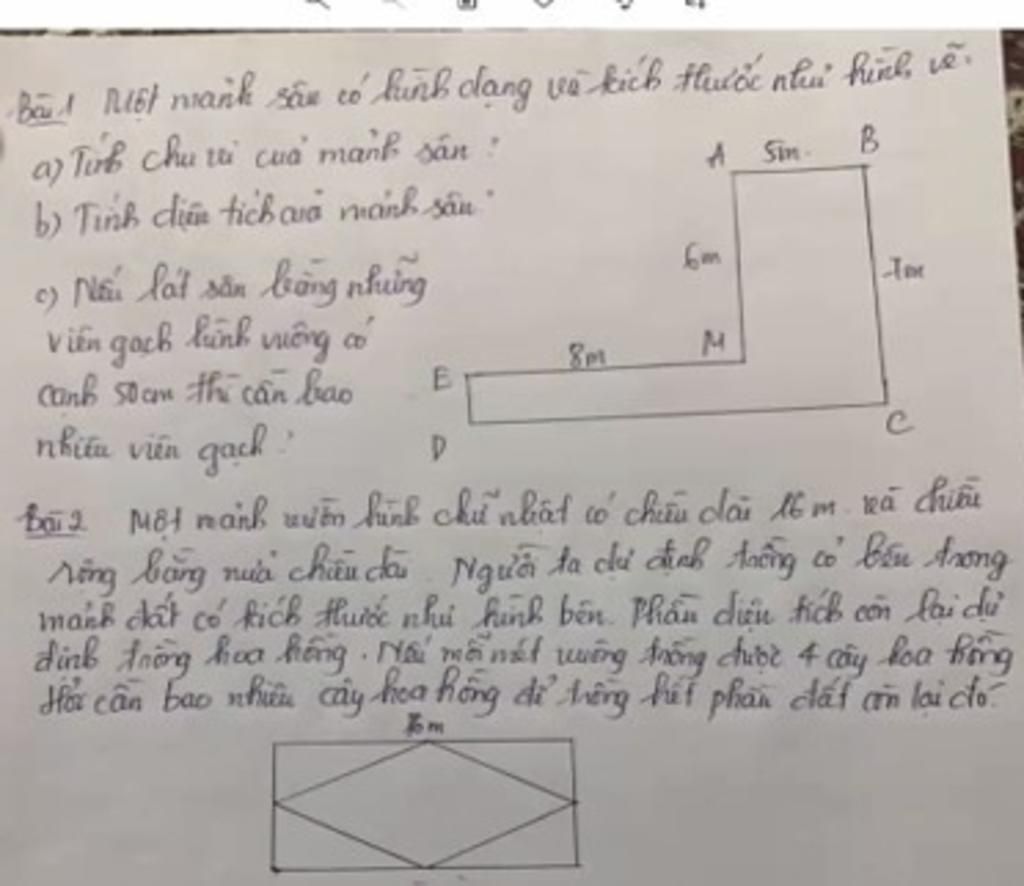 Bài 1 Một mảnh sân có hình dạng và kích thước như hình vẽ.
a) Tính chu vi của mảnh sân?
b) Tính diện tích của mảnh sân?
c) Nếu lát sân bằng những
viên gạch hình vuông có
cạnh 50cm thì cần bao
nhiêu viên gạch?
A 5m B
6m 7m
8m M
E
D C
Bài 2 Một mảnh vườn hình chữ nhật có chiều dài 16m và chiều
rộng bằng nửa chiều dài. Người ta dự định trồng cỏ bên trong
mảnh đất có kích thước như hình bên. Phần diện tích còn lại dự
định trồng hoa hồng. Nếu mỗi mét vuông trồng được 4 cây hoa hồng
Hỏi cần bao nhiêu cây hoa hồng để trồng hết phần đất còn lại đó.
16m